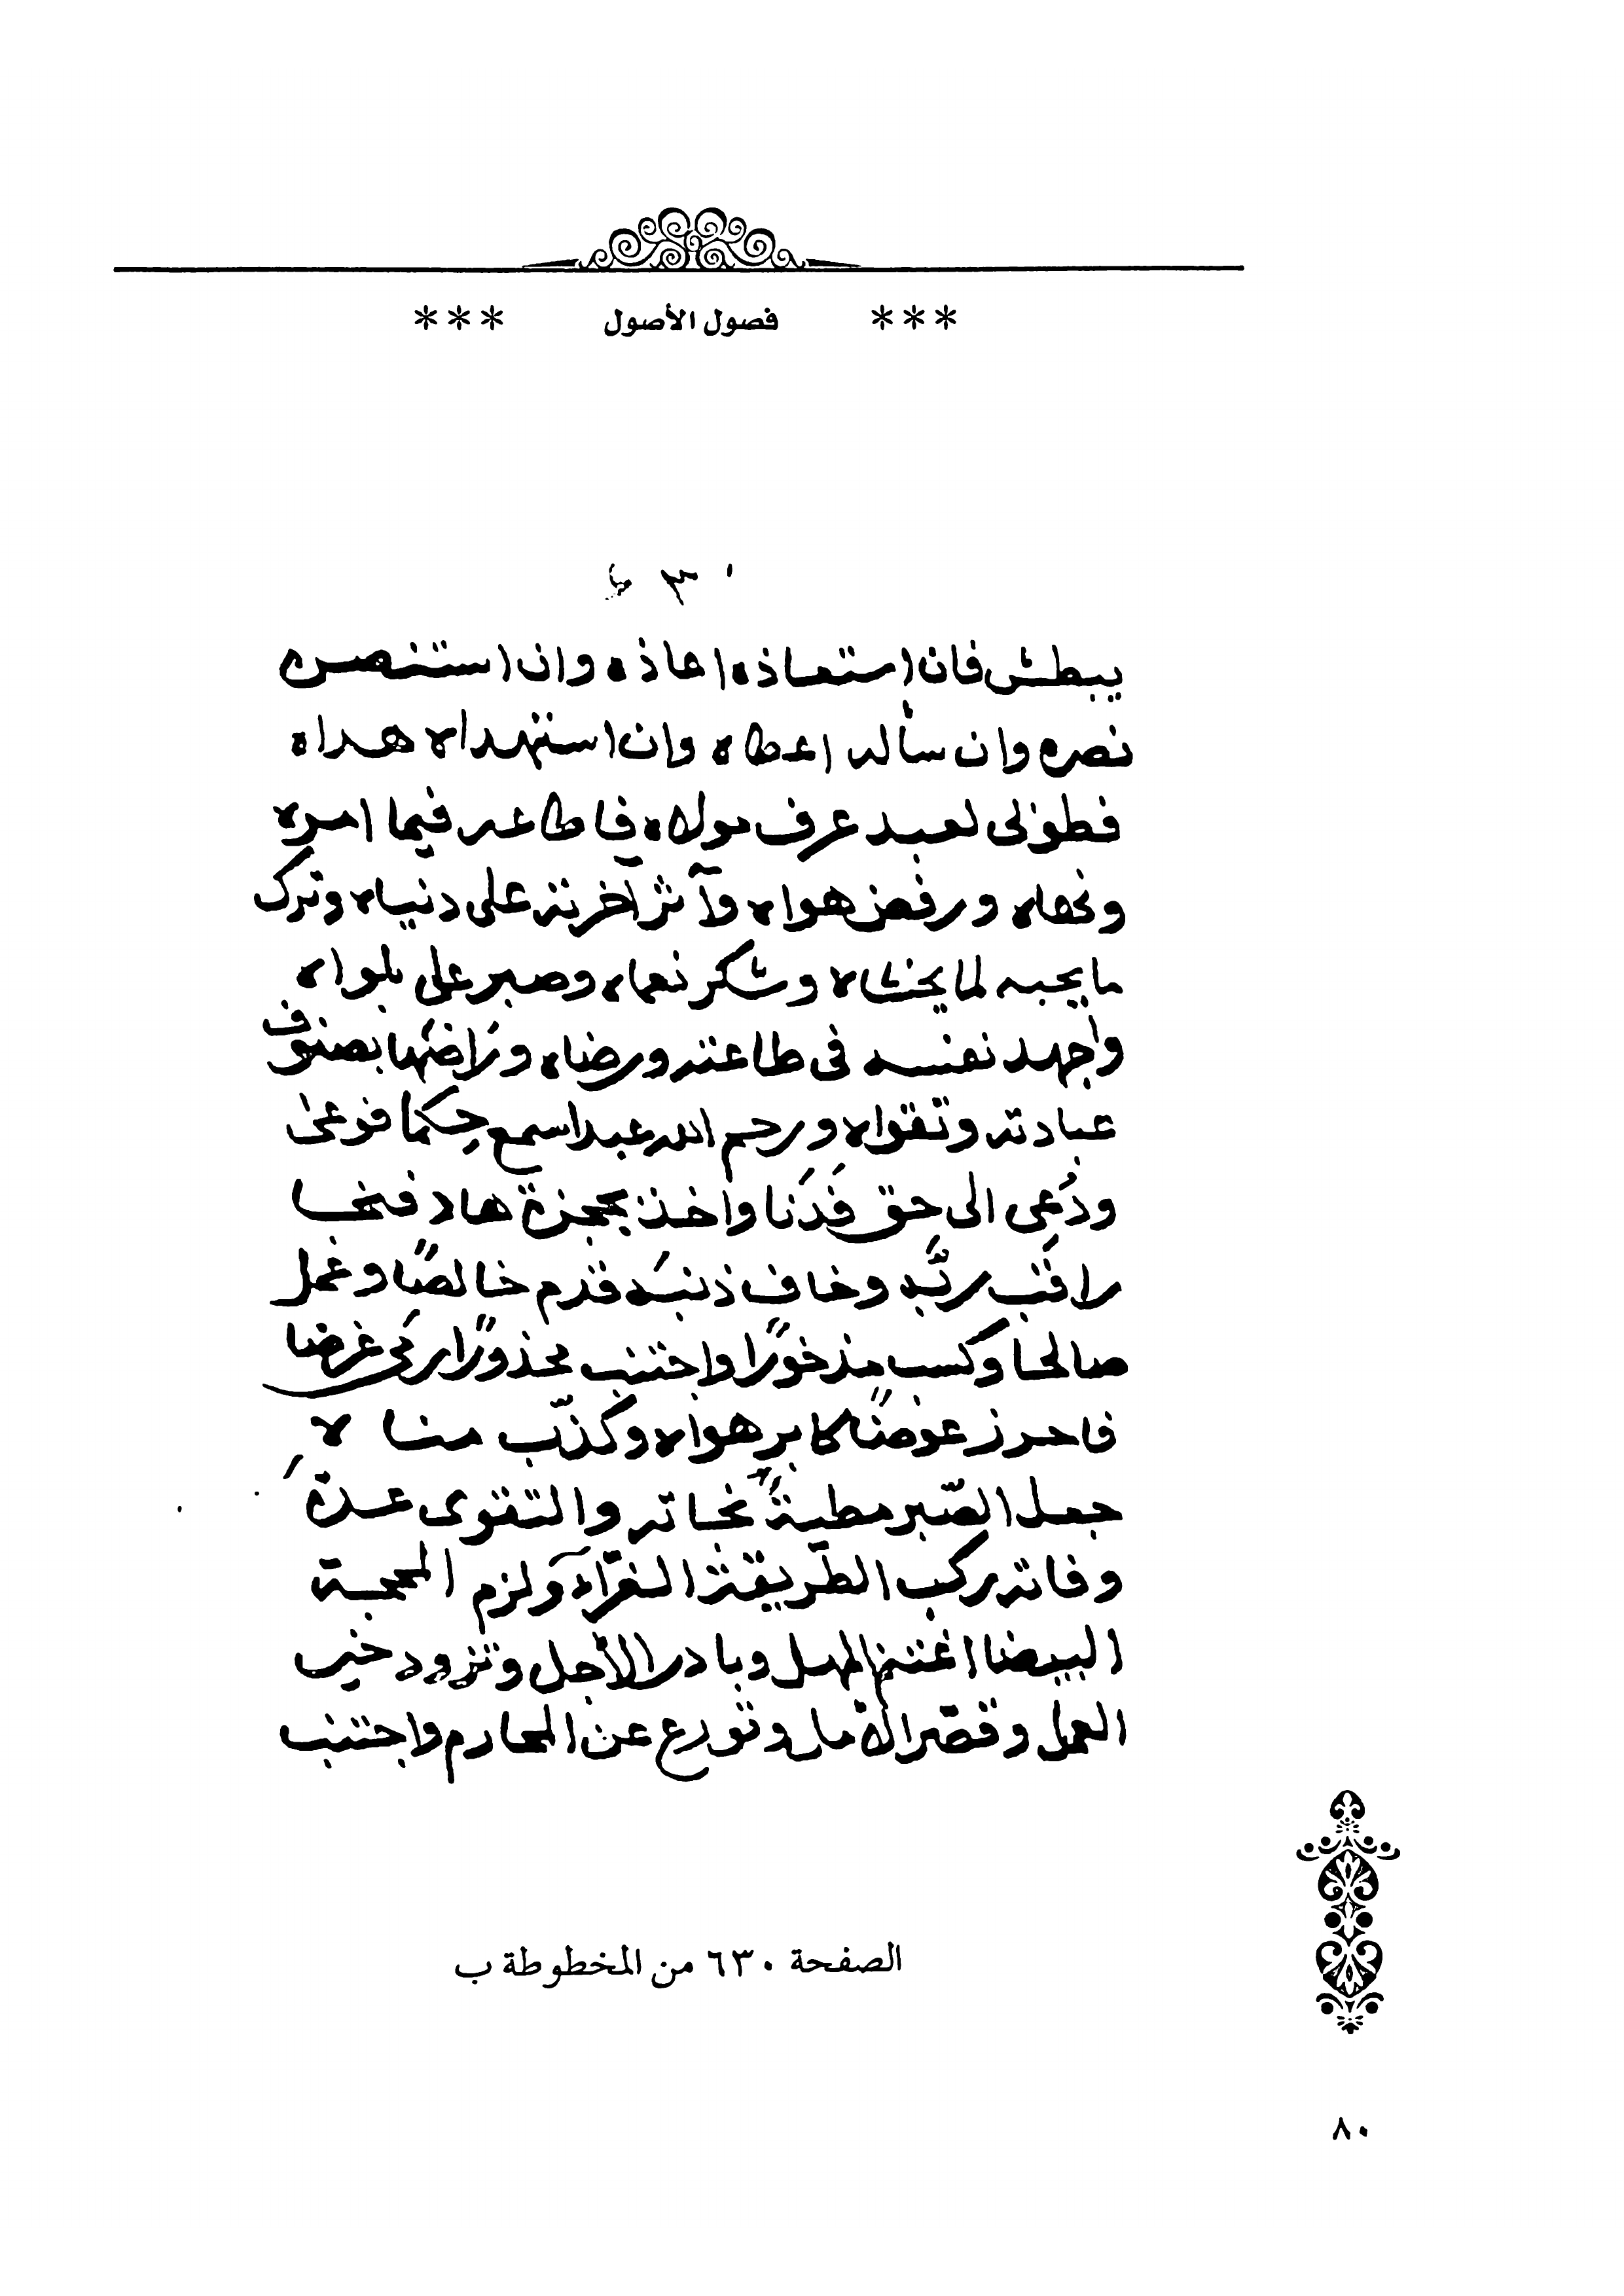 *** فصول الأصول ***
يبطش فان استعاذه اعاذه وان استنصره
نصره وان سأله اعطاه وان استهداه هداه
فطوبى لعبد عرف مولاه فاطاعه فيما امره
ونهاه ورفض هواه وآثر آخرته على دنياه وترك
ما يحبه لما يخشاه وشكر نعماه وصبر على بلواه
واجهد نفسه فى طاعته ورضاه ورَاضَها بصنوف
عبادته وتقواه ورحم الله عبدا سمع حِكما فوعىٰ
ودُعِى الى حق فَدَنا واخذ بحجزة هاد فنجا
راقَبَ ربَّه وخاف ذنبَه قدم خالصًا وعمل
صالحا وكسب مذخورًا واجتنب محذورًا رمى غرضا
فاحرز عوضًا كابر هواه وكذّب مناه
جعل الصّبر مطيةً نجاته والتقوى عدةَ
وفاته ركب الطّريقة الغرّآء ولزم المحجة
البيضا اغتنم المهل وبادر الأجل وتزود خير
العمل وقصّر الأمل وتورع عن المحارم واجتنب
الصفحة ٦٣٠ من المخطوطة ب
٨٠